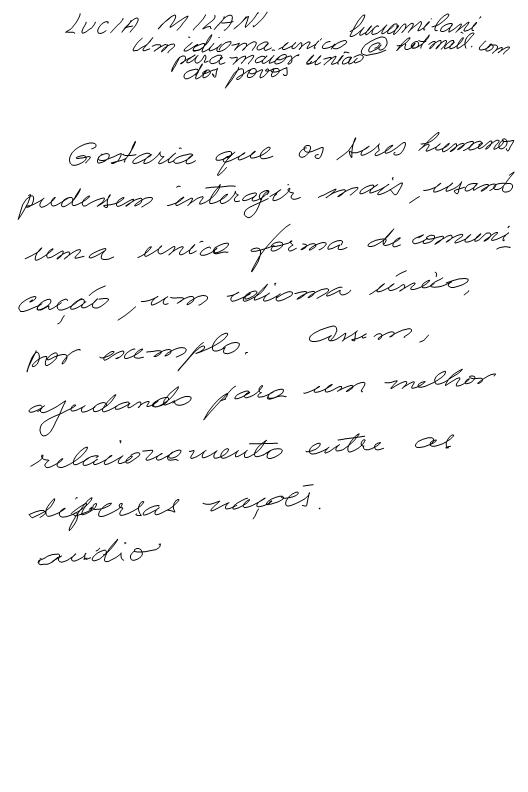 LUCIA MILANI luciamilani
Um idioma unico @ hotmail.com
para maior união
dos povos
Gostaria que os seres humanos
pudessem interagir mais, usando
uma unica forma de comuni
cação, um idioma único,
por exemplo. Assim,
ajudando para um melhor
relacionamento entre as
diversas nações.
audio